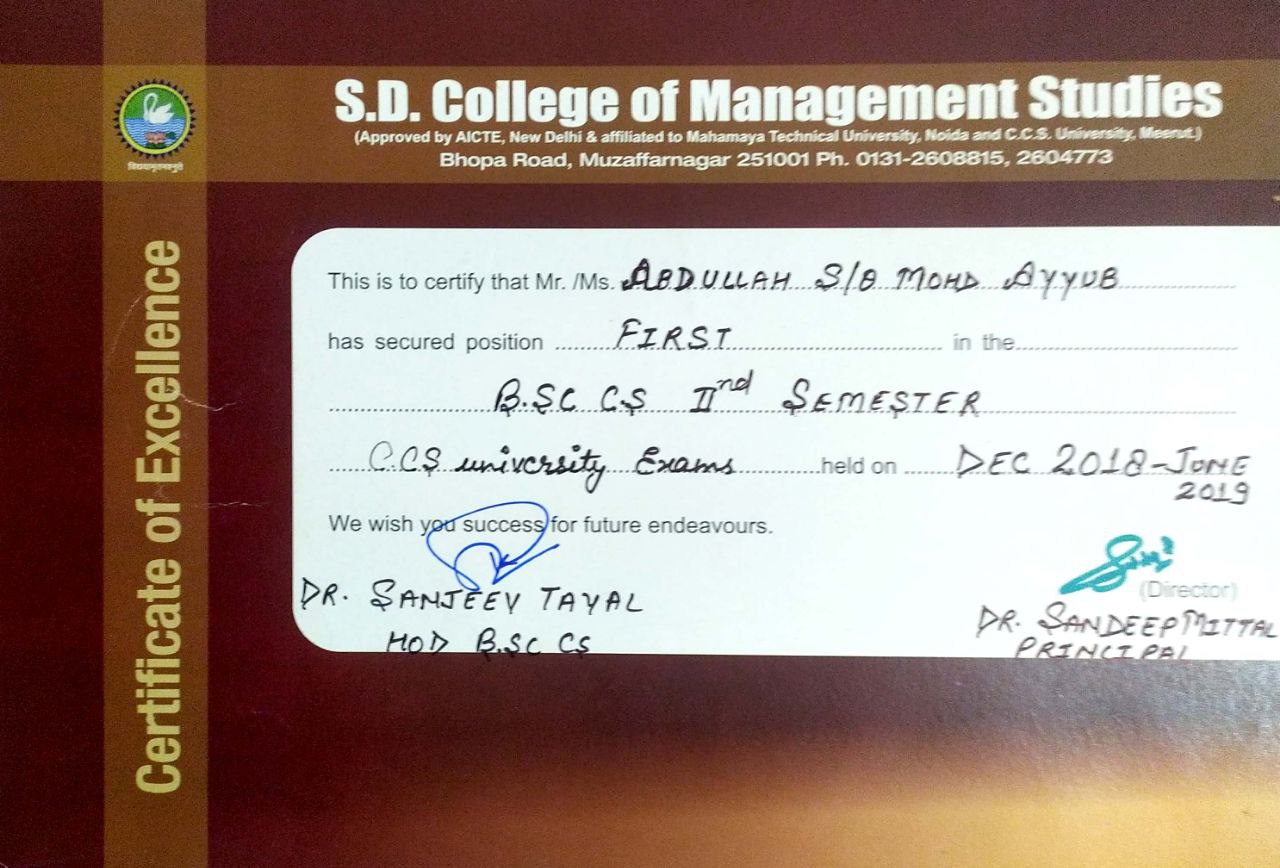 S.D. College of Management Studies
(Approved by AICTE, New Delhi & affiliated to Mahamaya Technical University, Noida and C.C.S. University, Meerut.)
Bhopa Road, Muzaffarnagar 251001 Ph. 0131-2608815, 2604773
Certificate of Excellence
This is to certify that Mr. /Ms. ABDULLAH S/O MOHD AYYUB
has secured position FIRST in the
B.SC CS IInd SEMESTER
C.CS university Exams held on DEC 2018-JUNE
2019
We wish you success for future endeavours.
(Director)
DR. SANJEEV TAYAL
HOD B.SC CS
DR. SANDEEP MITTAL
PRINCIPAL